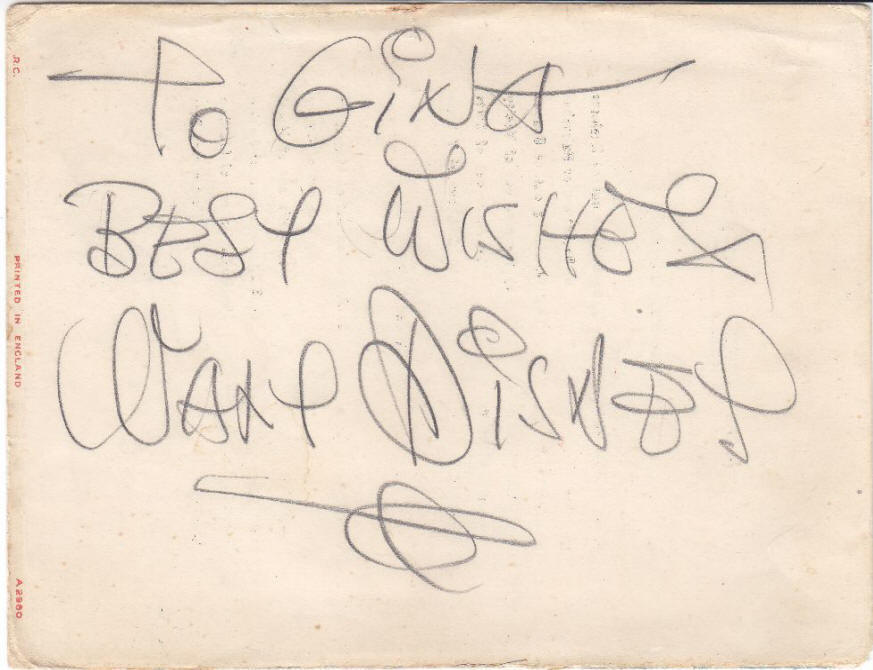 To GiNA
BEST WISHES
WALT DISNEY
R.C.
PRINTED IN ENGLAND
A2980